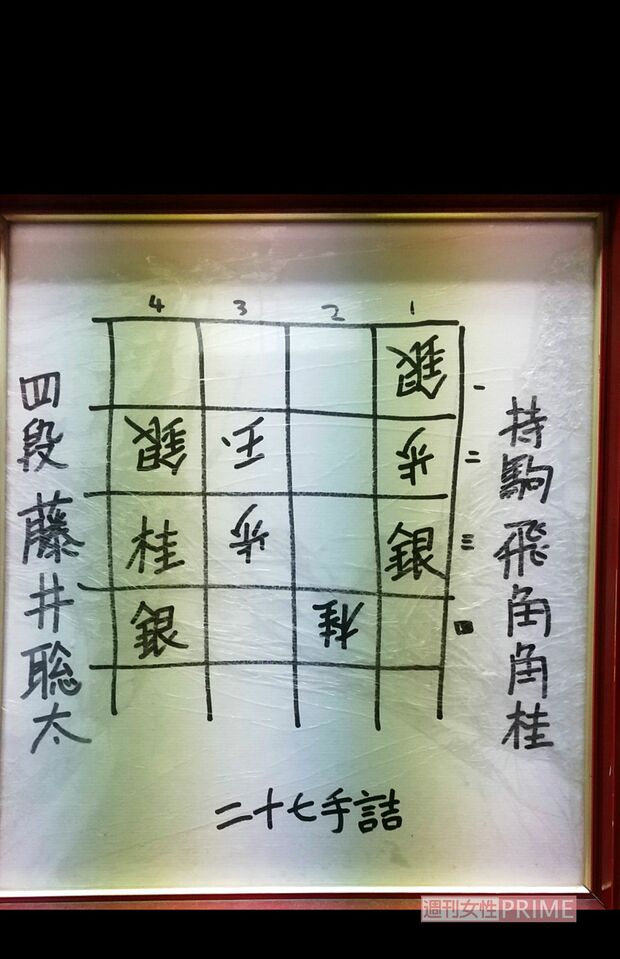 持駒 飛角角桂
4 3 2 1
銀 一
銀 玉 歩 二
桂 歩 銀 三
銀 桂 四
四段 藤井聡太
二十七手詰
週刊女性PRIME